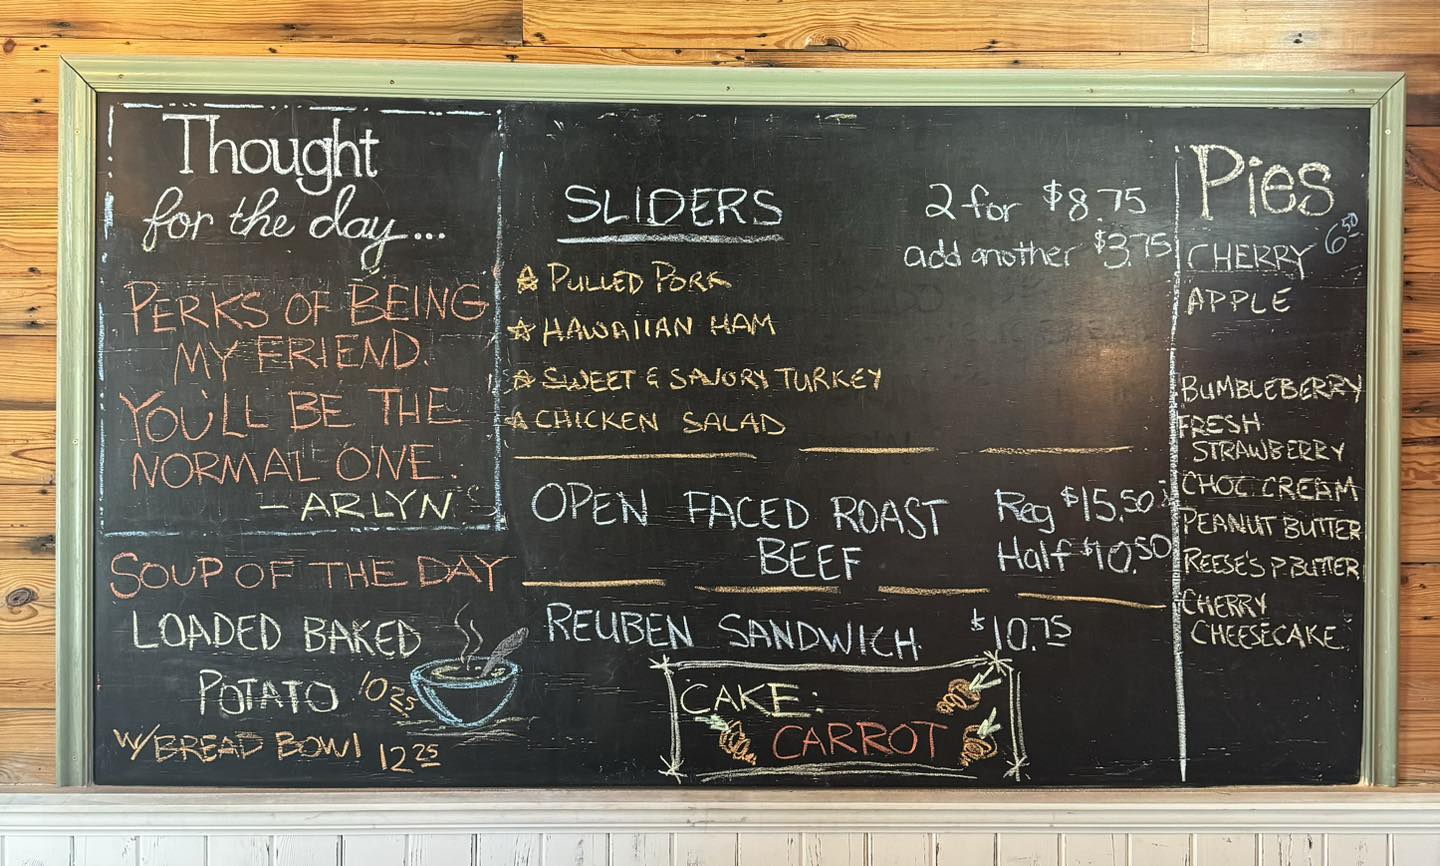 Thought
for the day...
PERKS OF BEING
MY FRIEND.
YOU'LL BE THE
NORMAL ONE.
- ARLYN
SOUP OF THE DAY
LOADED BAKED
POTATO 10 25
W/ BREAD BOWL 12 25
SLIDERS
2 for $8.75
add another $3.75
☆ PULLED PORK
☆ HAWAIIAN HAM
☆ SWEET & SAVORY TURKEY
☆ CHICKEN SALAD
OPEN FACED ROAST
BEEF
Reg $15.50
Half $10.50
REUBEN SANDWICH $10.75
CAKE:
CARROT
Pies
6 50
CHERRY
APPLE
BUMBLEBERRY
FRESH
STRAWBERRY
CHOC CREAM
PEANUT BUTTER
REESE'S P BUTTER
CHERRY
CHEESECAKE